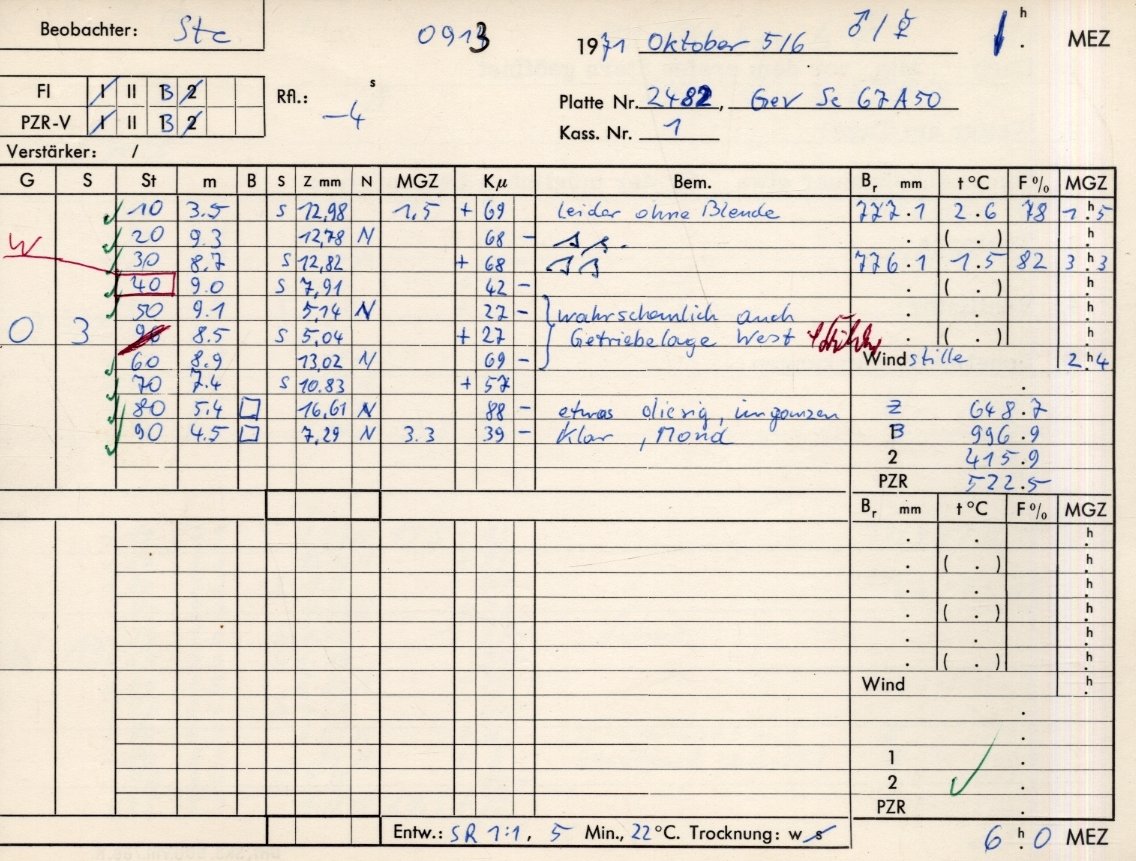 Beobachter: Stc 0913 1971 Oktober 5/6 ♂/☿ 1 h. MEZ
FI I II B 2 Rfl.: -4 s Platte Nr. 2482, Gev Sc 67A50
PZR-V I II B 2 Kass. Nr. 1
Verstärker: /
G S St m B S Z mm N MGZ Kμ Bem. Br mm t °C F % MGZ
10 3.5 S 12,98 1,5 + 69 leider ohne Blende 777.1 2.6 78 1 h. 5
W 20 9.3 12,78 N 68 - . ( . ) h.
30 8.7 S 12,82 + 68 776.1 1.5 82 3 h. 3
40 9.0 S 7,91 42 - . ( . ) h.
50 9.1 5,14 N 27 - wahrscheinlich auch . h.
0 3 8.5 S 5,04 + 27 Getriebelage West . ( . ) h.
60 8.9 13,02 N 69 - Windstille 2 h. 4
70 7.4 S 10.83 + 57 .
80 5.4 16,61 N 88 - etwas diesig, im ganzen Z 648.7
90 4.5 7,29 N 3.3 39 - Klar, Mond B 996.9
2 415.9
PZR 522.5
Br mm t °C F % MGZ
. h.
. ( . ) h.
. h.
. ( . ) h.
. h.
. ( . ) h.
Wind h.
.
.
1 .
2 .
PZR .
Entw.: SR 1:1, 5 Min., 22 °C. Trocknung: w s 6 h. 0 MEZ